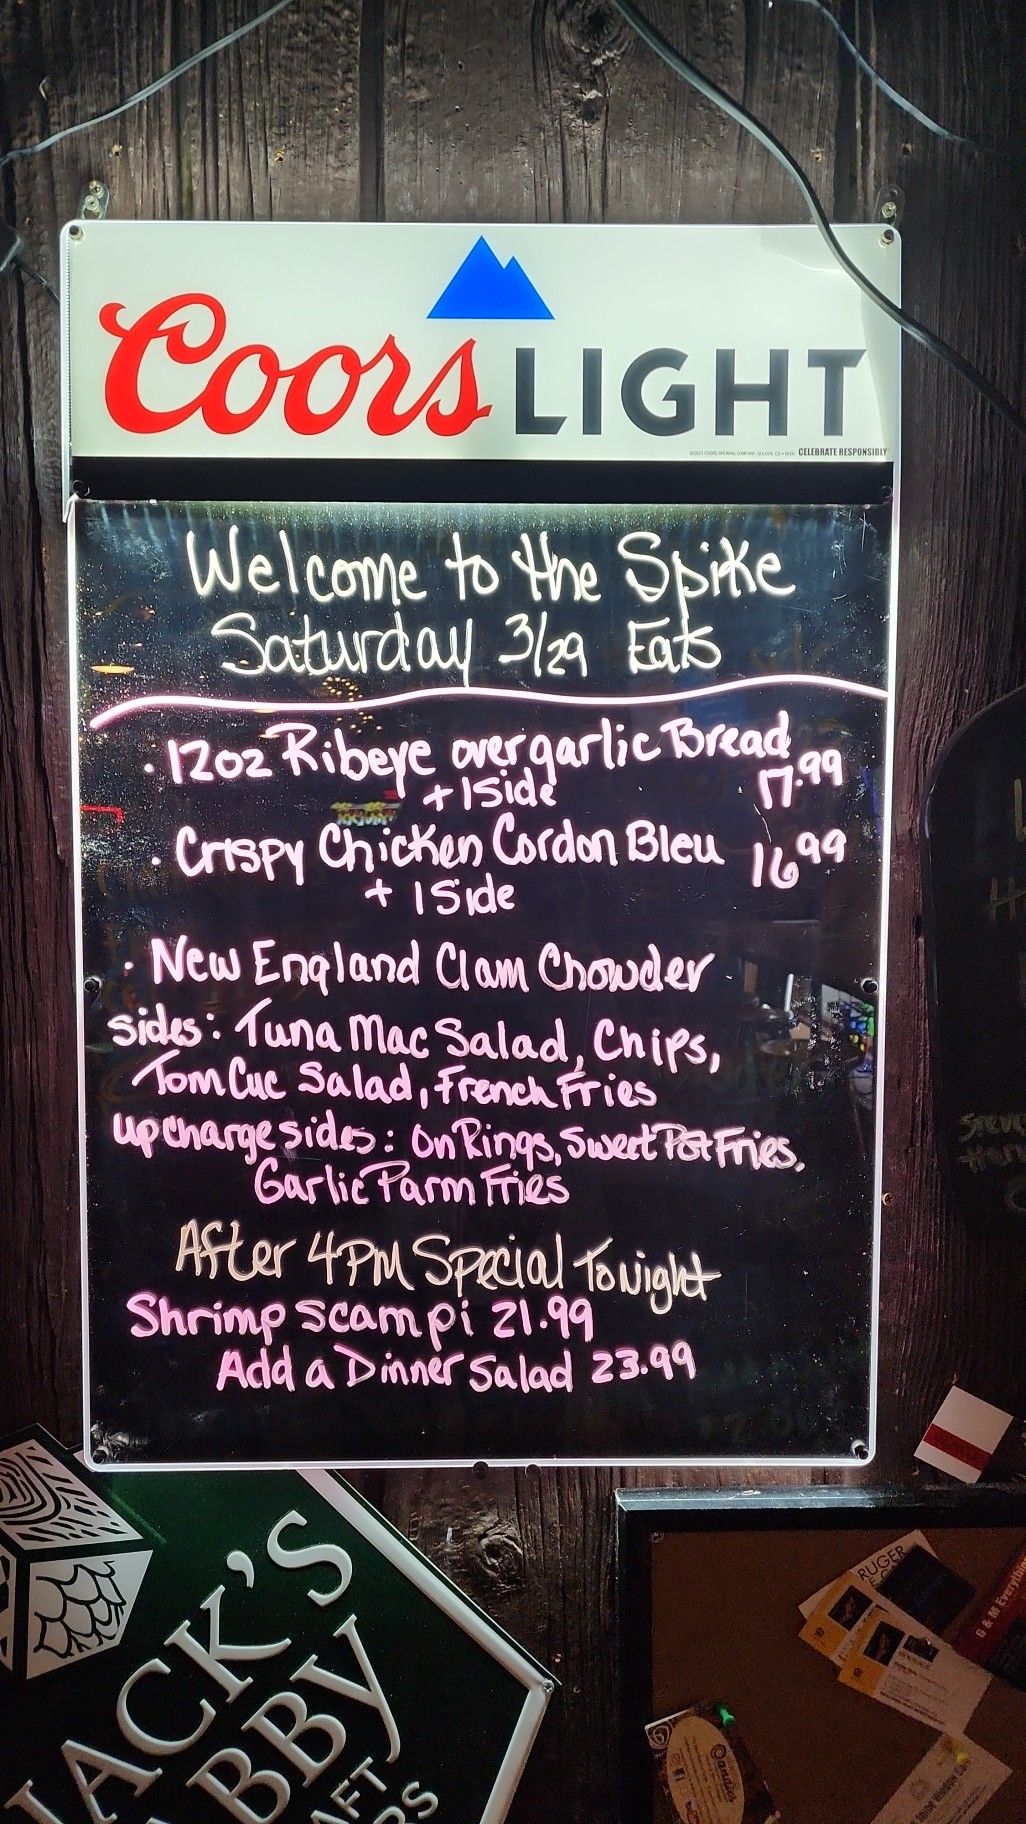 Coors LIGHT
©2023 COORS BREWING COMPANY, GOLDEN, CO • BEER CELEBRATE RESPONSIBLY
Welcome to the Spike
Saturday 3/29 Eats
• 12oz Ribeye over garlic Bread
+ 1 Side 17.99
• Crispy Chicken Cordon Bleu 16.99
+ 1 Side
• New England Clam Chowder
sides: Tuna Mac Salad, Chips,
Tom Cuc Salad, French Fries
upcharge sides: On Rings, Sweet Pot Fries,
Garlic Parm Fries
After 4PM Special Tonight
Shrimp scampi 21.99
Add a Dinner salad 23.99
JACK'S
RUGER
G & M Everything